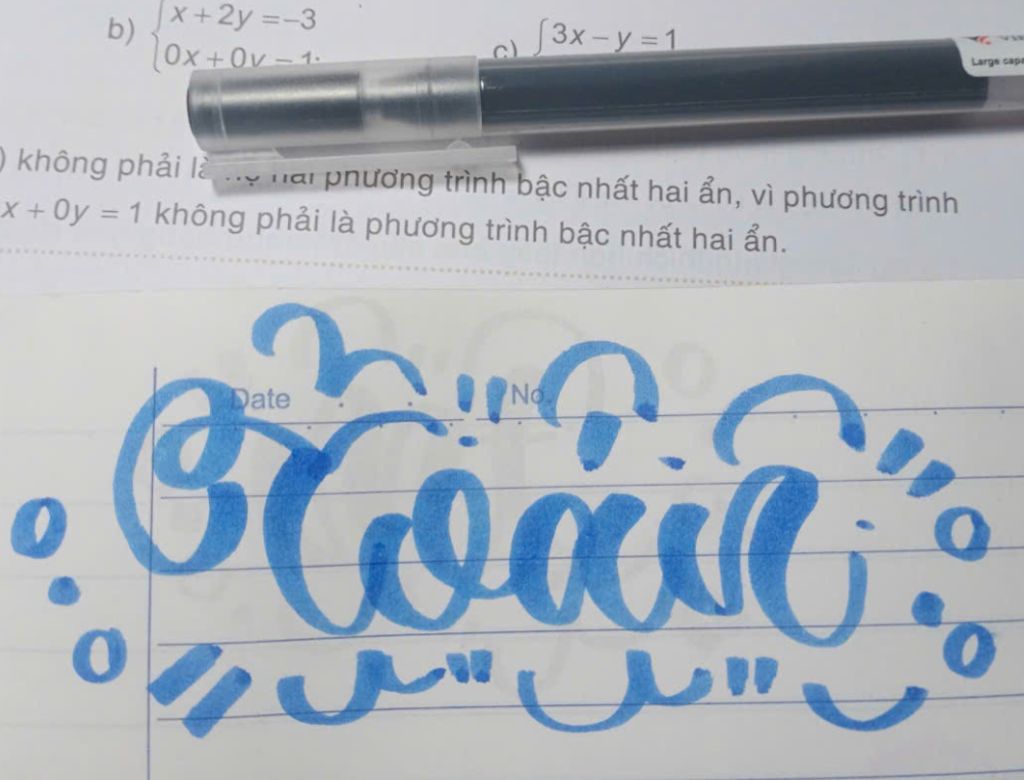 b) { x + 2y = –3
0x + 0y = 1;
c) { 3x – y = 1
Large capa
) không phải là hệ hai phương trình bậc nhất hai ẩn, vì phương trình
x + 0y = 1 không phải là phương trình bậc nhất hai ẩn.
Date No.
Toán